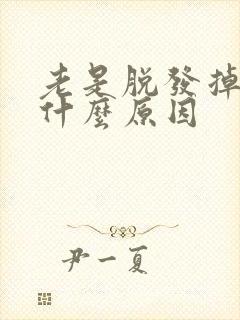 老是脱發掉
什麼原因
尹一夏